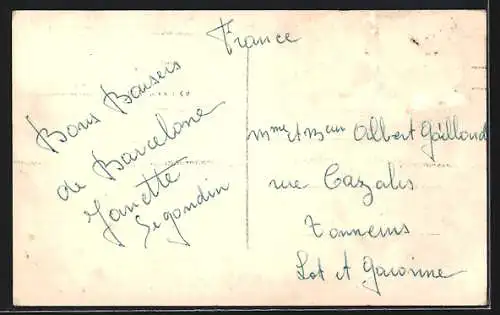 France
Bons Baisers
de Barcelone
Janette
Segondin
Mme et Mr Albert Gaillard
rue Cazalis
Tonneins
Lot et Garonne